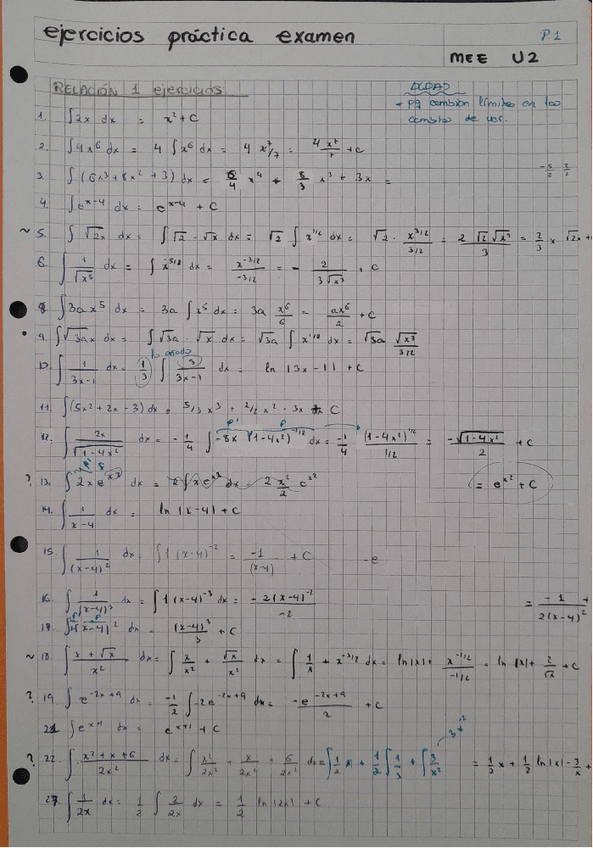 ejercicios práctica examen P.1
MEE U2
RELACIÓN 1 ejercicios
DUDAS
→ pq cambian límites en los cambio de var.
1. ∫2x dx = x² + C
2. ∫4x⁶ dx = 4 ∫x⁶ dx = 4 x⁷/7 = 4x⁷/7 + C
3. ∫(6x³ + 8x² + 3) dx = 6/4 x⁴ + 8/3 x³ + 3x =
4. ∫e^(x-4) dx = e^(x-4) + C
~ 5. ∫√2x dx = ∫√2 · √x dx = √2 ∫x^(1/2) dx = √2 · x^(3/2)/(3/2) = 2√2√x³/3 = 2/3 x · √2x +
6. ∫1/√x⁵ dx = ∫x^(-5/2) dx = x^(-3/2)/(-3/2) = - 2/(3√x³) + C
8. ∫3ax⁵ dx = 3a ∫x⁵ dx = 3a x⁶/6 = ax⁶/2 + C
9. ∫√3ax dx = ∫√3a · √x dx = √3a ∫x^(1/2) dx = √3a √x³/(3/2)
10. ∫1/(3x-1) dx = 1/3 ∫3/(3x-1) dx = ln|3x-1| + C
11. ∫(5x² + 2x - 3) dx = 5/3 x³ + 2/2 x² - 3x + C
12. ∫2x/√(1-4x²) dx = -1/4 ∫-8x (1-4x²)^(-1/2) dx = -1/4 (1-4x²)^(1/2)/(1/2) = -√(1-4x²)/2 + C
? 13. ∫2x e^(x²) dx = 2∫x e^(x²) dx = 2 x²/2 e^(x²) = e^(x²) + C
14. ∫1/(x-4) dx = ln|x-4| + C
15. ∫1/(x-4)² dx = ∫1(x-4)⁻² = -1/(x-4) + C -e
16. ∫1/(x-4)³ dx = ∫1(x-4)⁻³ dx = -2(x-4)⁻²/-2 = -1/2(x-4)² +
17. ∫(x-4)² dx = (x-4)³/3 + C
~ 18. ∫(x+√x)/x² dx = ∫x/x² + √x/x² dx = ∫1/x + x^(-3/2) dx = ln|x| + x^(-1/2)/(-1/2) = ln|x| + 2/√x + C
? 19. ∫e^(-2x+9) dx = -1/2 ∫-2e^(-2x+9) dx = -e^(-2x+9)/2 + C
21. ∫e^(x+1) dx = e^(x+1) + C
? 22. ∫(x²+x+6)/2x² dx = ∫x²/2x² + x/2x² + 6/2x² dx = = 1/2 x + 1/2 ln|x| - 3/x +
27. ∫1/2x dx = 1/2 ∫2/2x dx = 1/2 ln|2x| + C